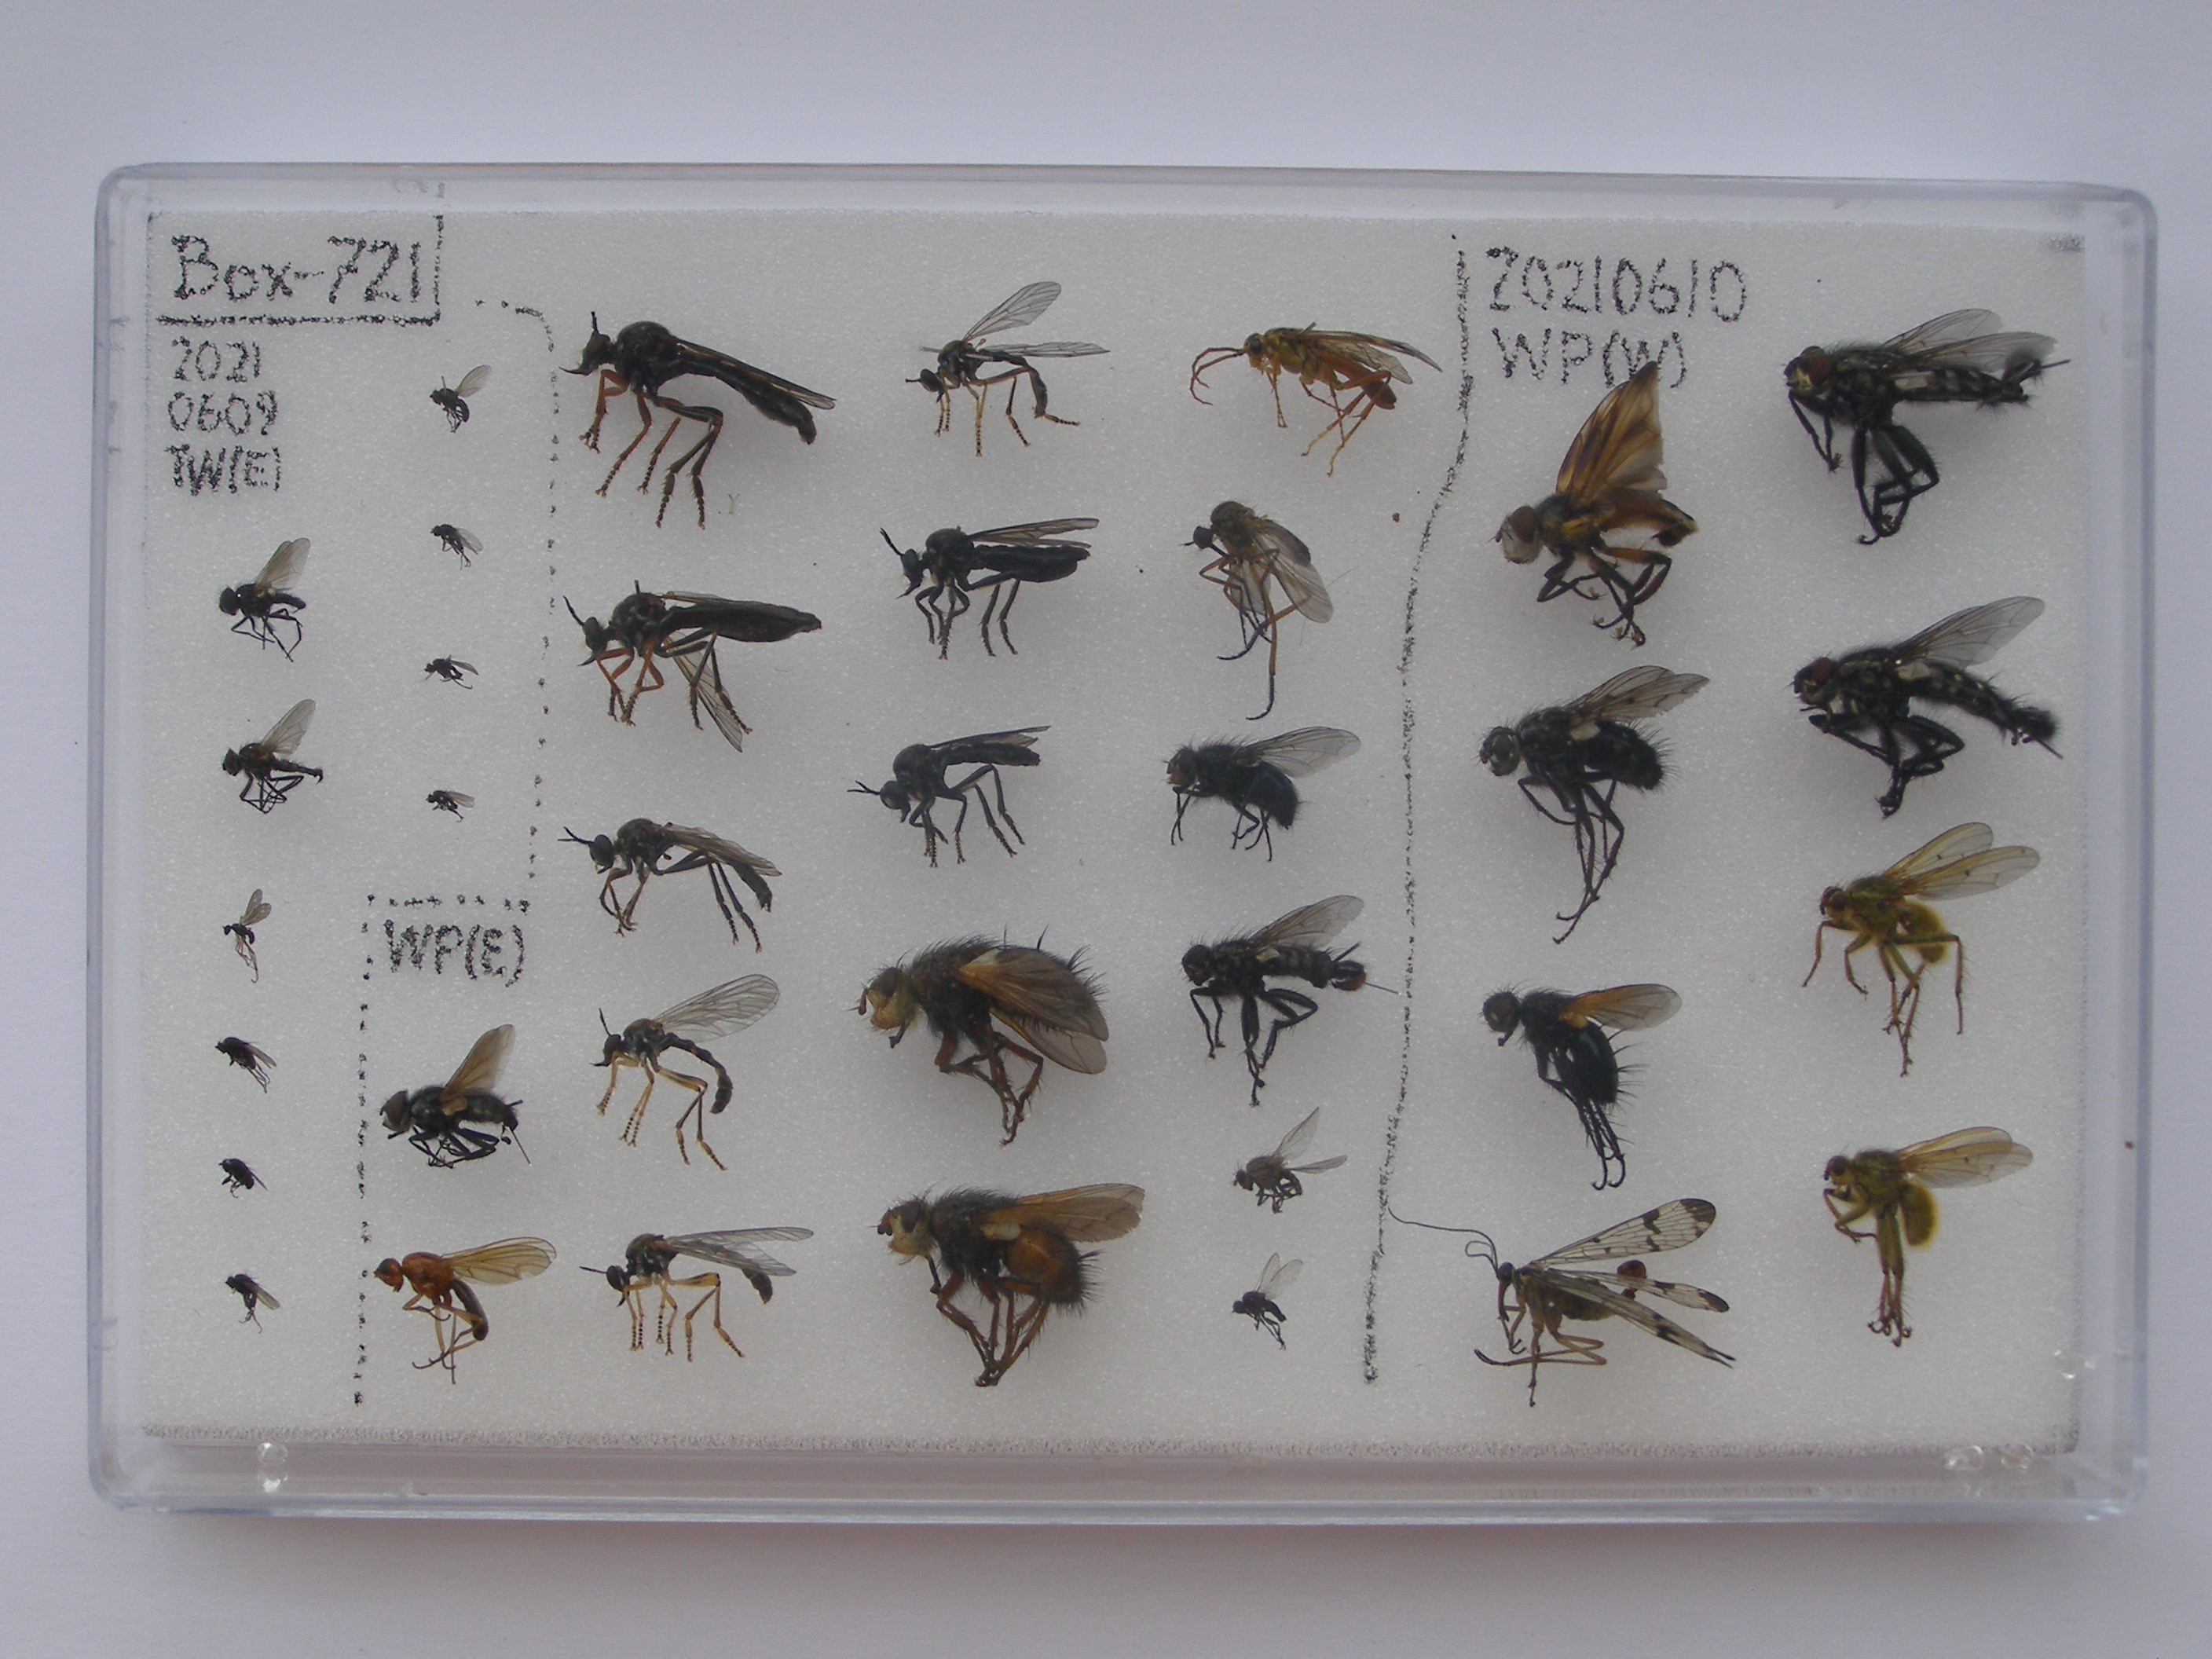 Box-721
2021
0609
TW(E)
WP(E)
20210610
WP(W)